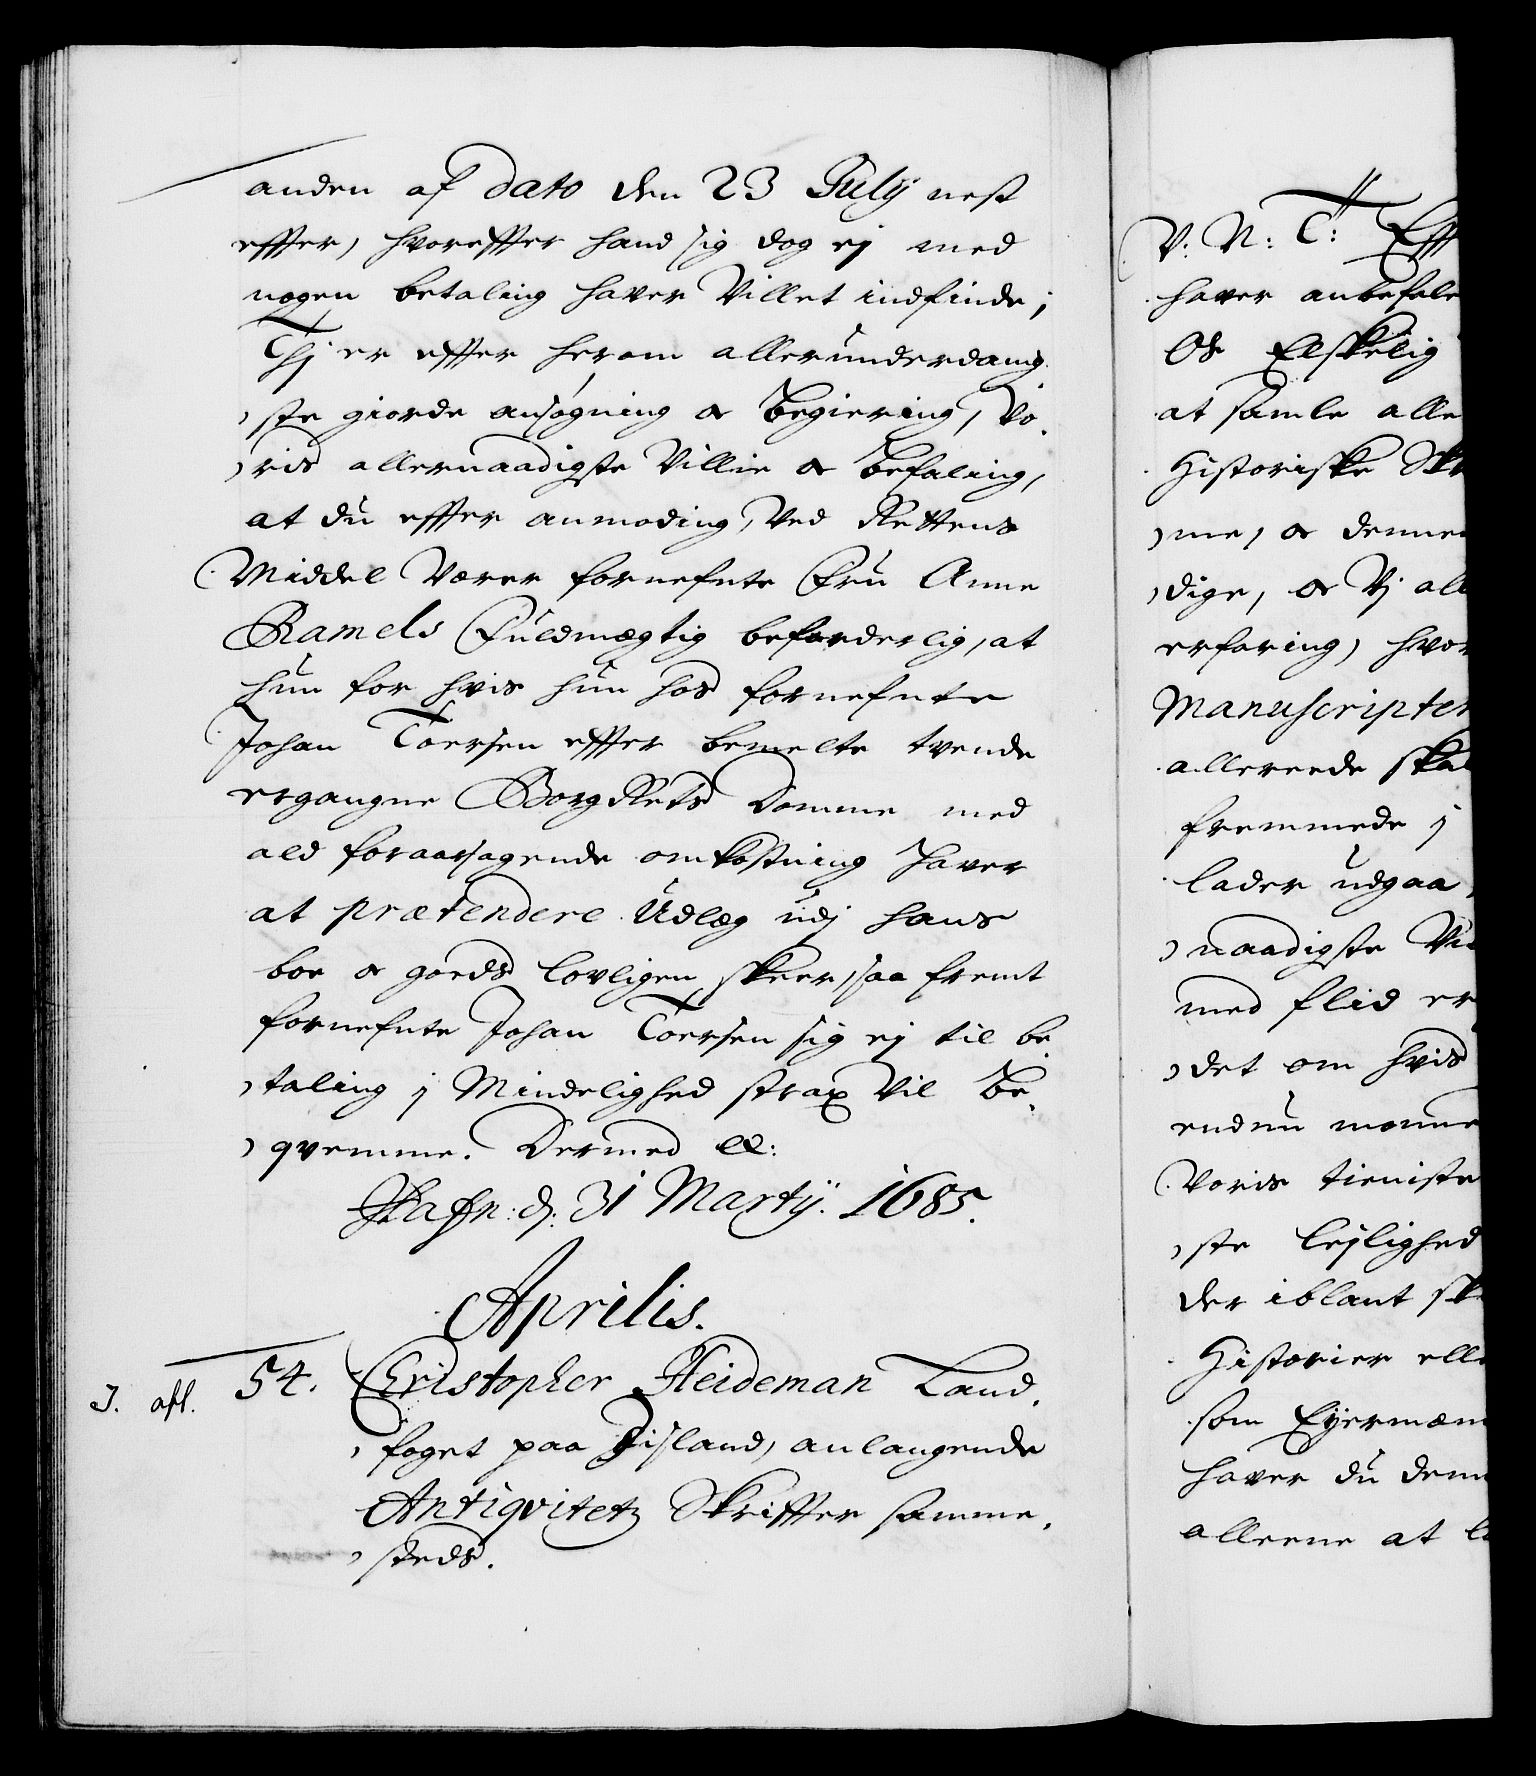 anden af dato den 23 July nest
effter, hvoreffter hand sig dog ej med
nogen betaling haver villet indfinde;
Thj er effter herom allerunderdanig
ste giorde ansøgning oc begiering, Vo
ris allernaadigste Villie oc befaling,
at du effter anmoding, ved Rettens
Middel værer fornefnte Fru Anne
Ramels Fuldmægtig beforderlig, at
hun for hvis hun hos fornefnte
Johan Toersen effter bemelte tvende
ergangne BorgRets Domme med
ald foraarsagende omkostning haver
at prætendere Udlæg udj hans
boe oc goeds lovligen skeer, saa fremt
fornefnte Johan Toersen sig ej til be
taling j Mindelighed strax vil be
qvemme. Dermed &:
Hafn: d: 31 Martij. 1685.
Aprilis.
J. afl. 54. Christopher Heideman Land
foget paa Jisland, anlangende
Antiqvitetz Skriffter samme
steds.
V. N: T: Eff
haver anbefale
Os Elskelig
at samle alle
Historiske Skr
me, oc denne
dige, oc Vj all
erfaring, hvor
Manuscripter
allereede skal
fremmede j
lader udgaa,
naadigste Vi
med flid er
det om hvis
endnu monne
Voris tieniste
ste lejlighed
der iblant sk
Historier elle
som Eyermæn
haver du dem
alleene at l